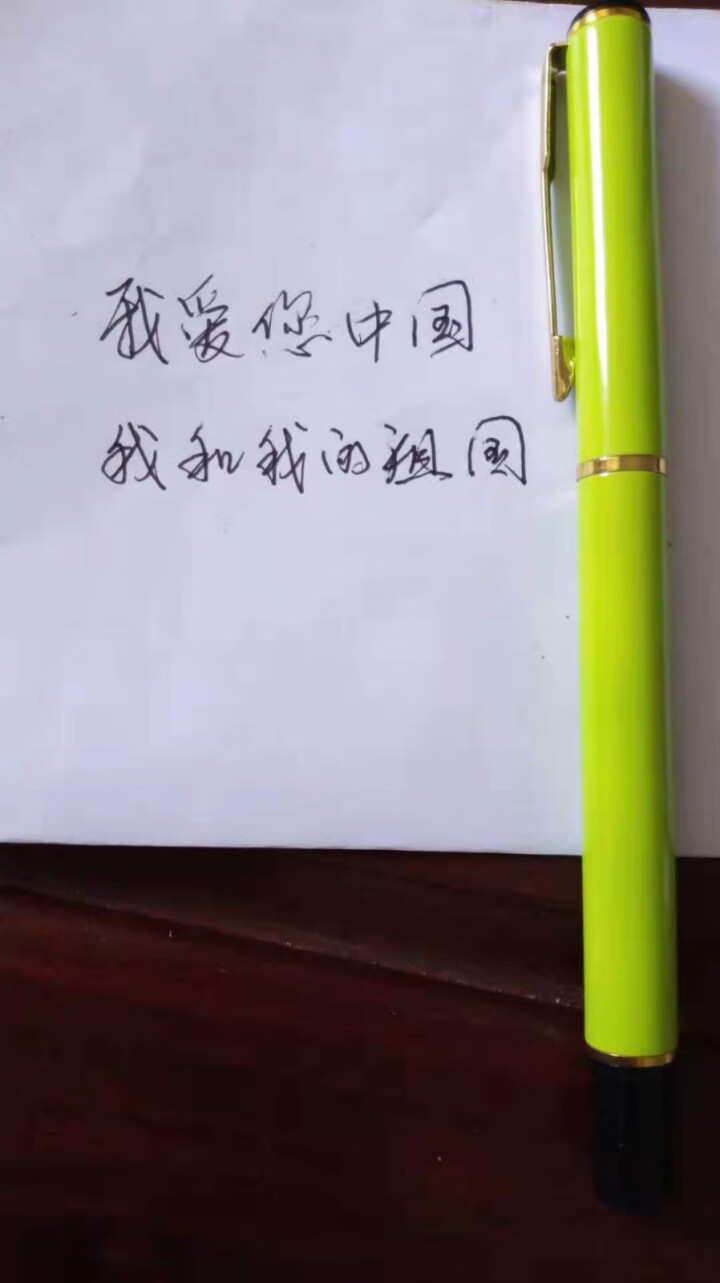 我爱您中国
我和我的祖国